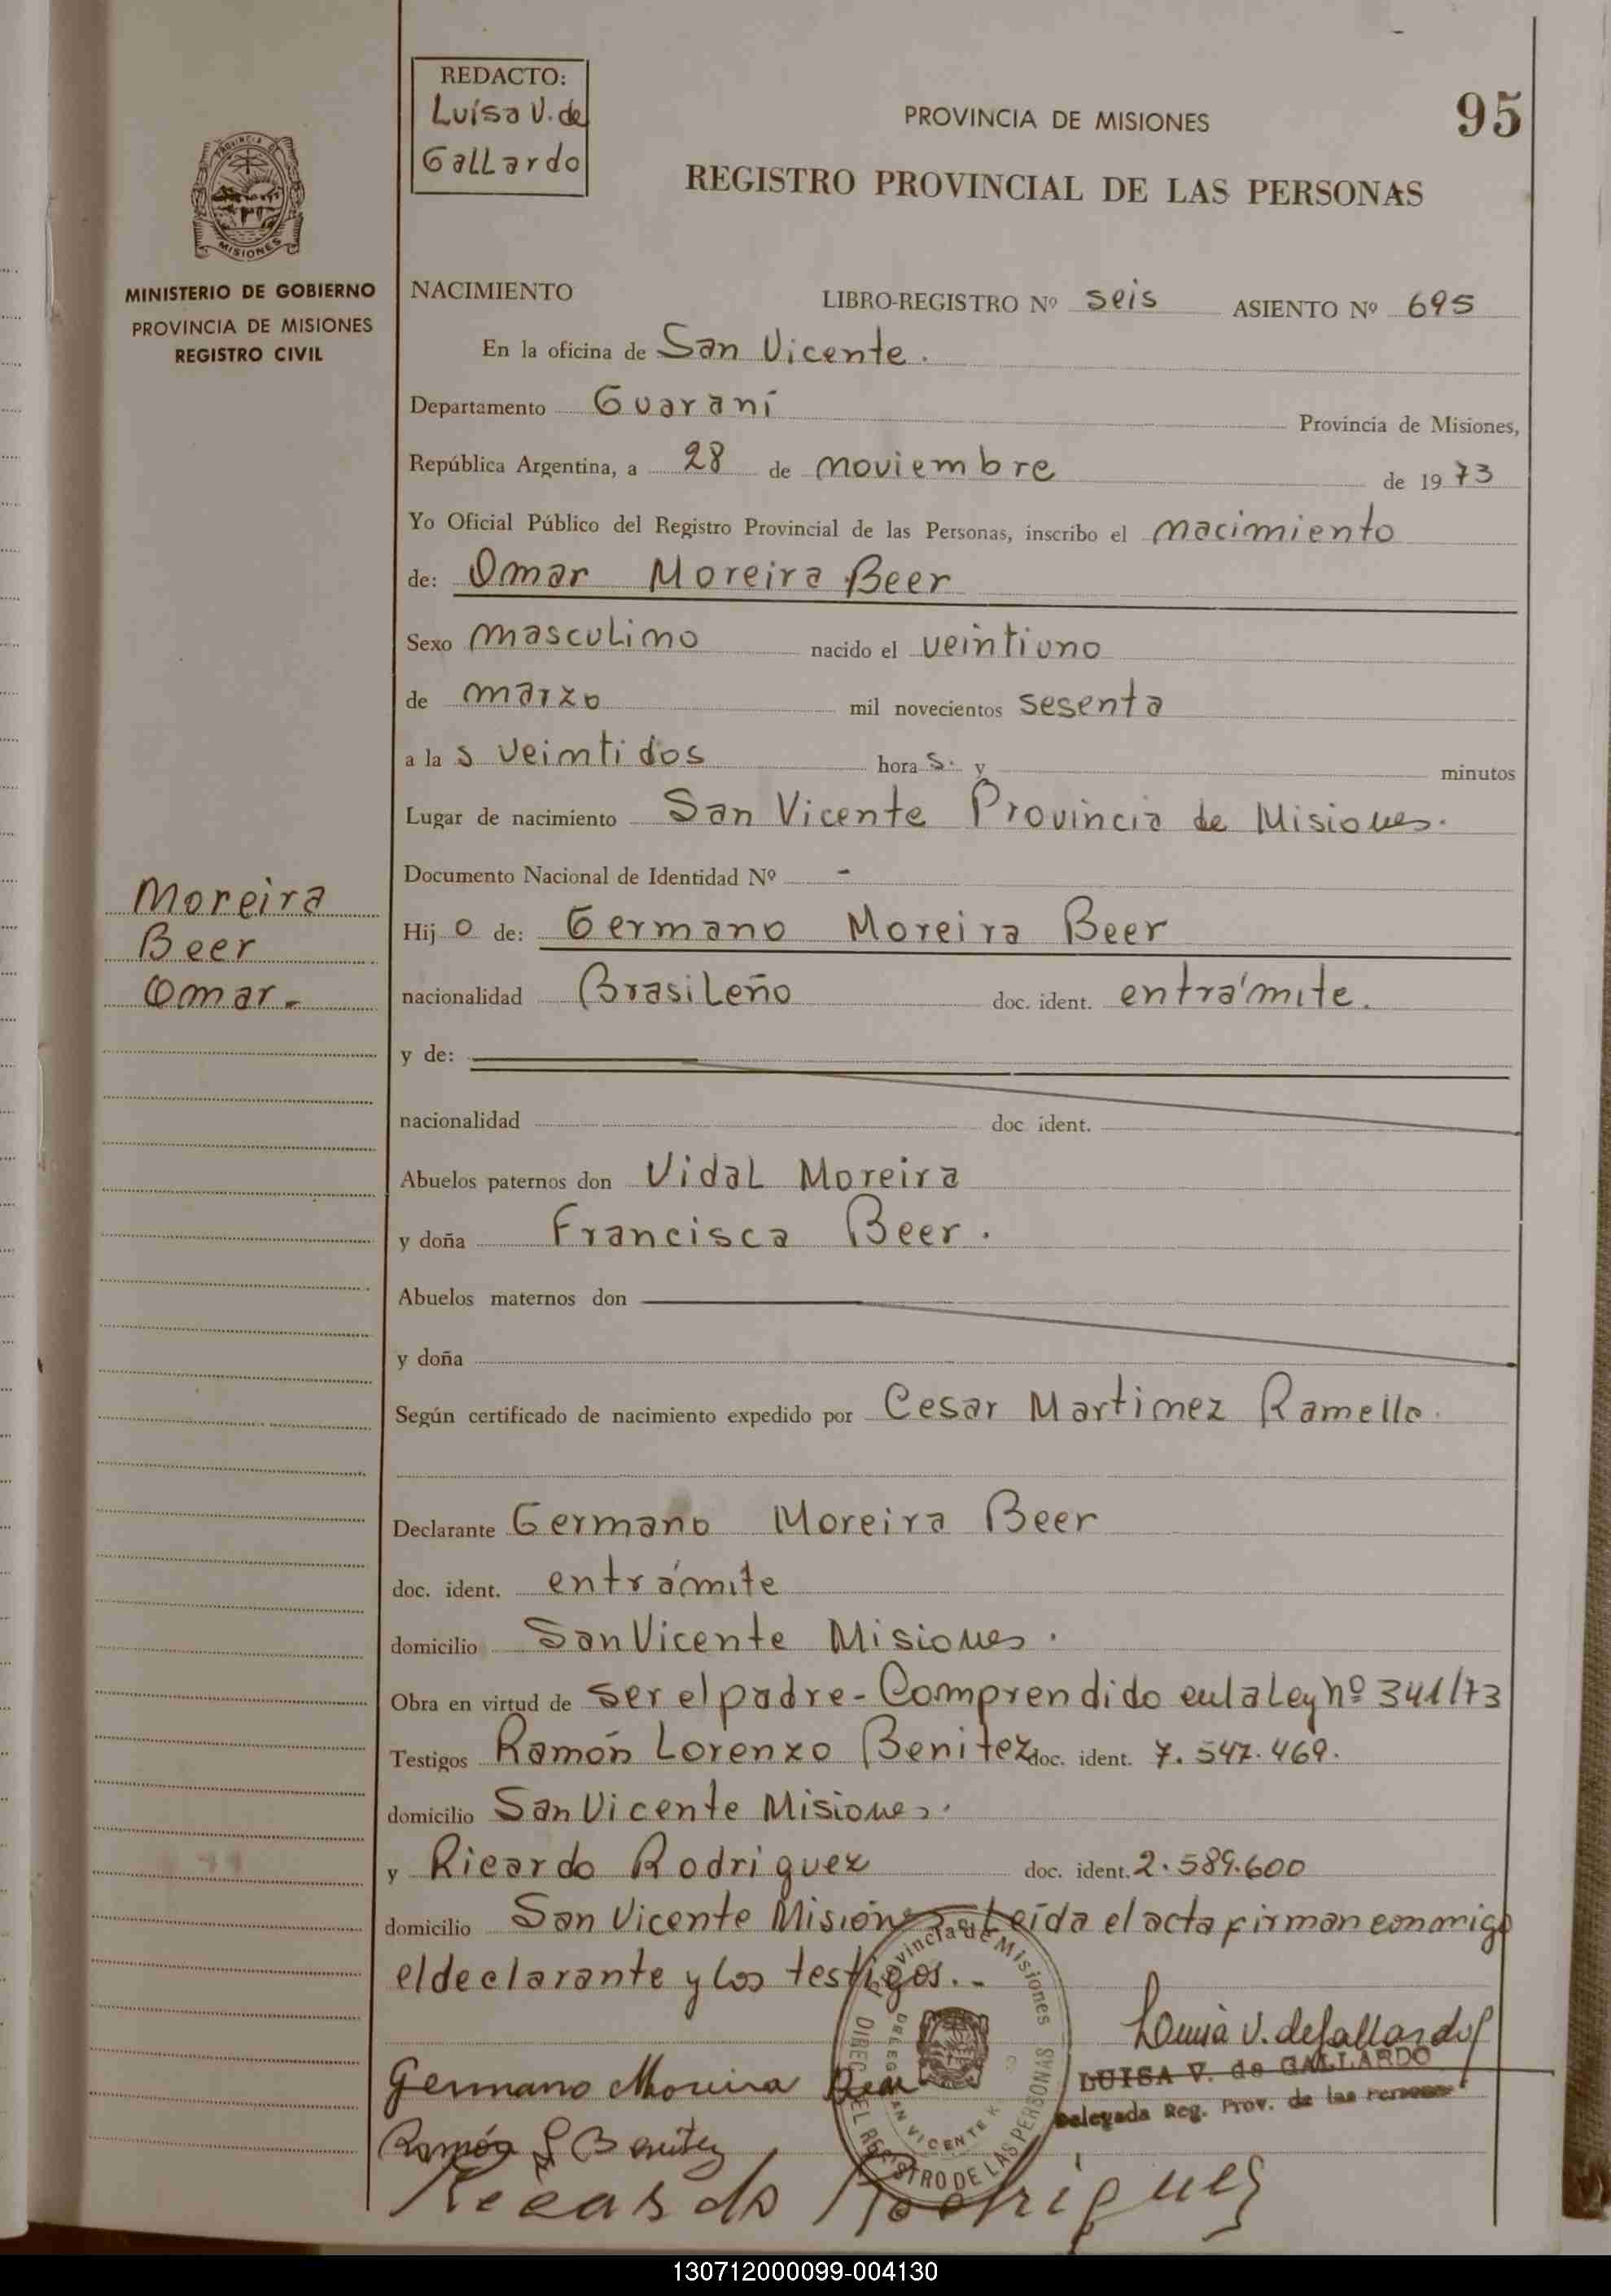 REDACTO:
Luísa V. de
Gallardo
PROVINCIA DE MISIONES
95
REGISTRO PROVINCIAL DE LAS PERSONAS
PROVINCIA DE
MISIONES
MINISTERIO DE GOBIERNO
PROVINCIA DE MISIONES
REGISTRO CIVIL
NACIMIENTO LIBRO-REGISTRO Nº seis ASIENTO Nº 695
En la oficina de San Vicente.
Departamento Guaraní Provincia de Misiones,
República Argentina, a 28 de noviembre de 1973
Yo Oficial Público del Registro Provincial de las Personas, inscribo el nacimiento
de: Omar Moreira Beer
Sexo masculino nacido el veintiuno
de marzo mil novecientos sesenta
a las veintidos horas. y minutos
Lugar de nacimiento San Vicente Provincia de Misiones.
Documento Nacional de Identidad Nº -
Moreira
Beer
Omar.-
Hijo de: Germano Moreira Beer
nacionalidad Brasileño doc. ident. entrámite.
y de:
nacionalidad doc ident.
Abuelos paternos don Vidal Moreira
y doña Francisca Beer.
Abuelos maternos don
y doña
Según certificado de nacimiento expedido por Cesar Martinez Ramello.
Declarante Germano Moreira Beer
doc. ident. entrámite
domicilio San Vicente Misiones.
Obra en virtud de ser el padre- Comprendido en la Ley nº 341/73
Testigos Ramón Lorenzo Benitez doc. ident. 7.547.469.
domicilio San Vicente Misiones.
y Ricardo Rodriguez doc. ident. 2.589.600
domicilio San Vicente Misiones. Leída el acta firman conmigo
el declarante y los testigos.-
Provincia de Misiones
DIREC. DEL REGISTRO DE LAS PERSONAS
SAN VICENTE
Luisa V. de Gallardo
LUISA V. de GALLARDO
Delegada Reg. Prov. de las Personas
Germano Moreira Beer
Ramón L Benitez
Ricardo Rodriguez
130712000099-004130